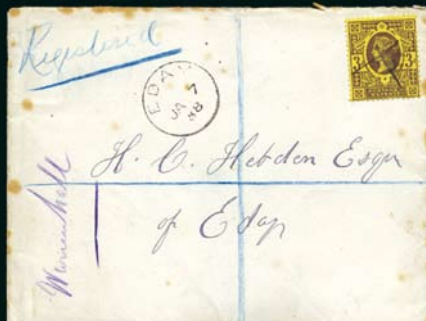 Registered
EDAY
JA 7
88
3d 3d
H. C. Hebden Esqr
of Eday